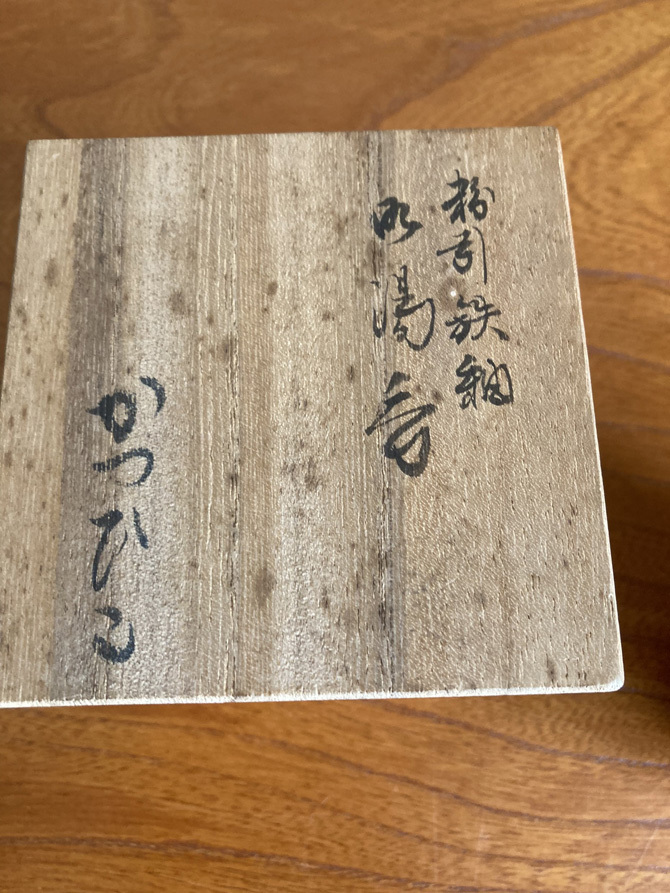 粉引鉄釉
湯呑
かつひこ